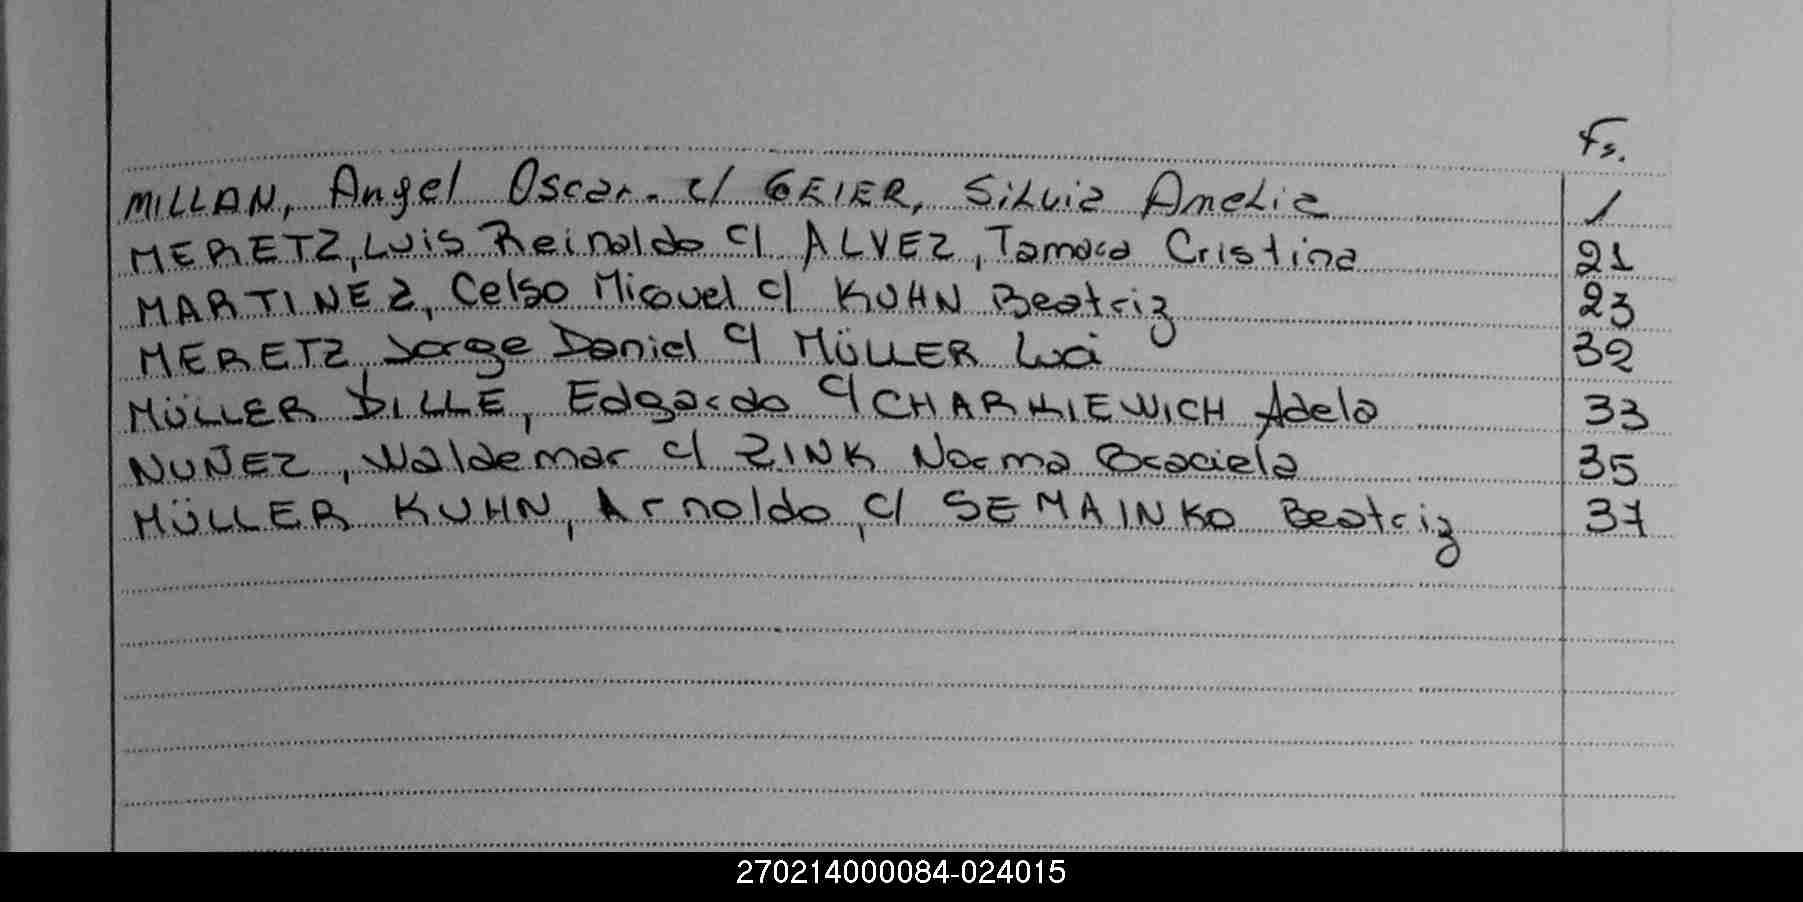 Fs.
MILLAN, Angel Oscar. c/ GEIER, Silvia Amelia 1
MERETZ, Luis Reinaldo c/ ALVEZ, Tamara Cristina 21
MARTINEZ, Celso Miguel c/ KUHN Beatriz 23
MERETZ Jorge Daniel c/ MÜLLER Luci 32
MÜLLER DILLE, Edgardo c/ CHARKIEWICH Adela 33
NUÑEZ, Waldemar c/ ZINK Norma Graciela 35
MÜLLER KUHN, Arnoldo, c/ SEMAINKO Beatriz 37
270214000084-024015